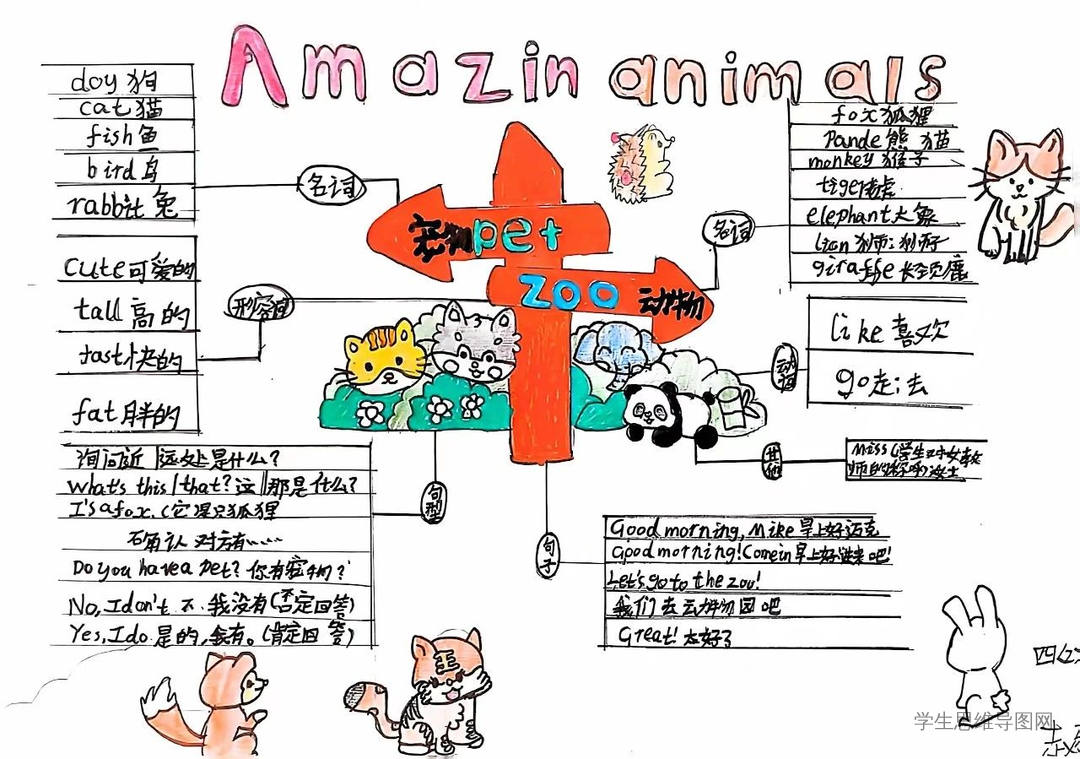 Amazin animals
doy 狗
cat 猫
fish 鱼
bird 鸟
rabbit 兔
名词
宠物 pet
zoo 动物
名词
fox 狐狸
Pande 熊猫
monkey 猴子
tiger 虎
elephant 大象
lion 狮;狮子
giraffe 长颈鹿
cute 可爱的
tall 高的
fast 快的
fat 胖的
形容词
动词
like 喜欢
go 走;去
其他
Miss (学生对女教
师的称呼)女士
句型
询问近 远处是什么?
What's this / that? 这 那是什么?
I'safox. (它是只狐狸
确认对方有……
Do you havea pet? 你有宠物?
No, I don't 不.我没有(否定回答)
Yes, I do 是的,我有。(肯定回答)
句子
Good morning, Mike 早上好迈克
Good morning! Comein 早上好进来吧!
Let's go to the zoo!
我们去动物园吧
Great! 太好了
王
学生思维导图网